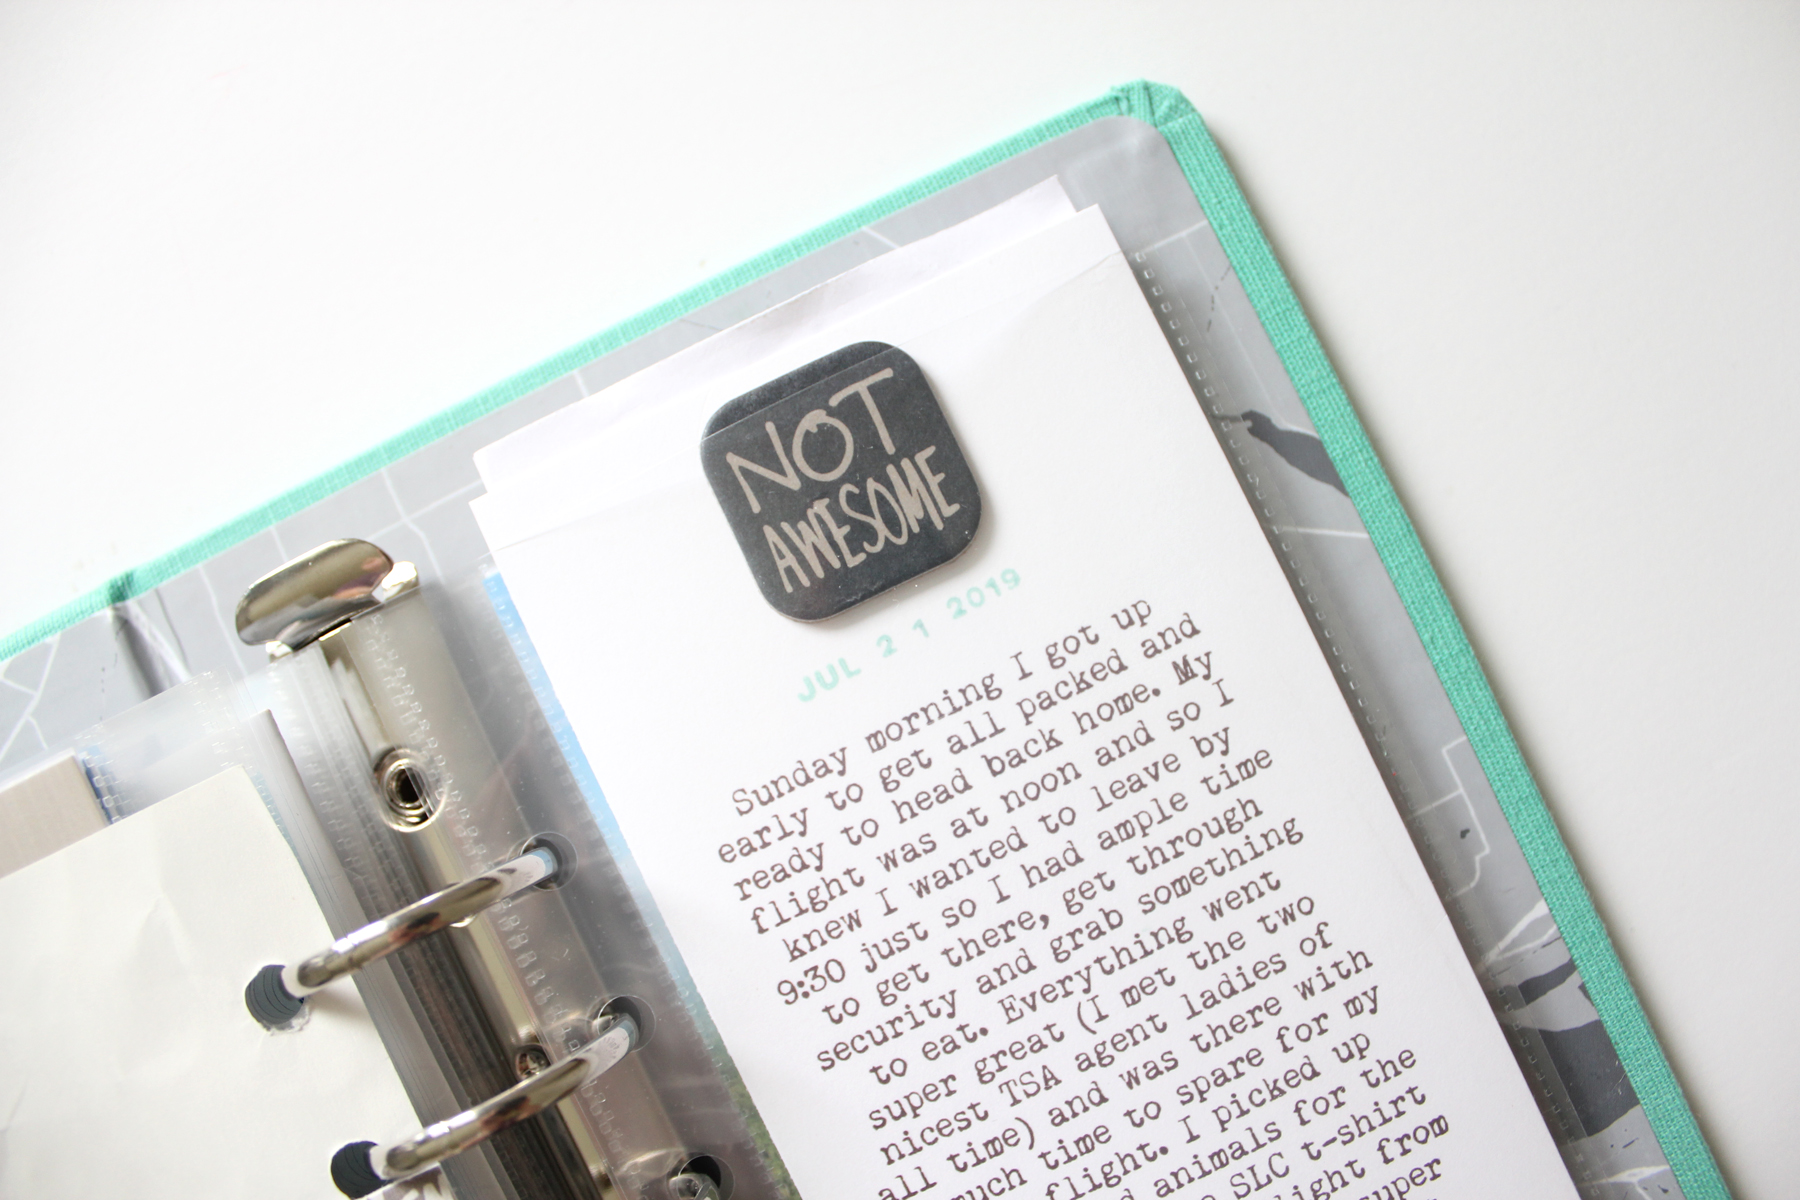 NOT
AWESOME
JUL 21 2019
Sunday morning I got up
early to get all packed and
ready to head back home. My
flight was at noon and so I
knew I wanted to leave by
9:30 just so I had ample time
to get there, get through
security and grab something
to eat. Everything went
super great (I met the two
nicest TSA agent ladies of
all time) and was there with
much time to spare for my
flight. I picked up
animals for the
SLC t-shirt
from
super